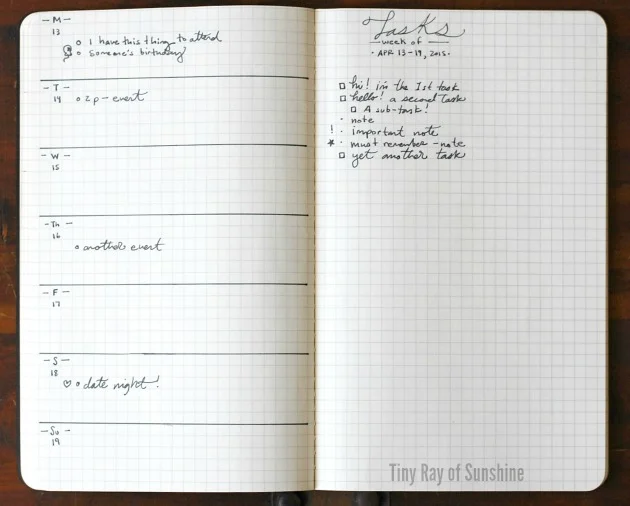 - M -
13
o I have this thing to attend
o Someone's birthday
- T -
14
o 2p - event
- W -
15
- Th -
16
o another event
- F -
17
- S -
18
♡ o date night!
- Su -
19
Tasks
week of
· APR 13-19, 2015 ·
□ hi! i'm the 1st task
□ hello! a second task
□ A sub-task!
· note
! · important note
* · must remember - note
□ yet another task
Tiny Ray of Sunshine